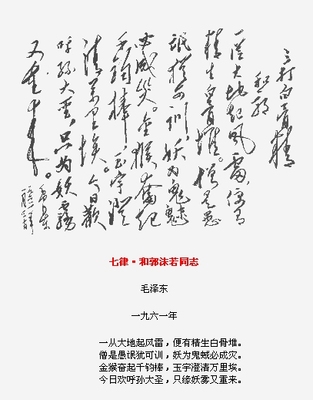 三打白骨精
一从大地起风雷，便有
精生白骨堆。僧是愚
氓犹可训，妖为鬼蜮
必成灾。金猴奋起
千钧棒，玉宇澄
清万里埃。今日欢
呼孙大圣，只为妖雾
又重来。
七律·和郭沫若同志
毛泽东
一九六一年
一从大地起风雷，便有精生白骨堆。
僧是愚氓犹可训，妖为鬼蜮必成灾。
金猴奋起千钧棒，玉宇澄清万里埃。
今日欢呼孙大圣，只缘妖雾又重来。